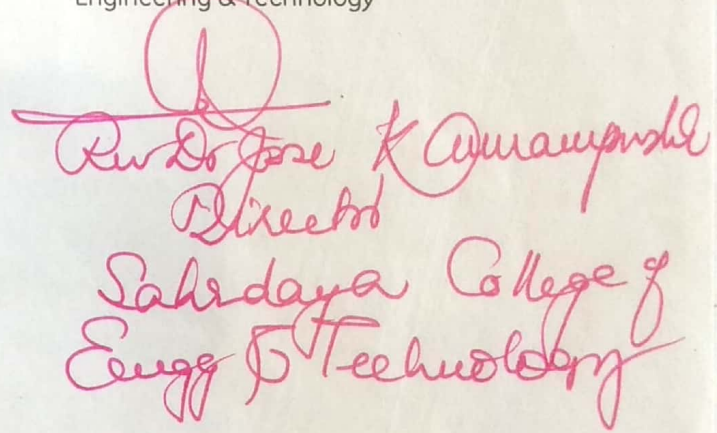 Engineering & Technology
Rev Dr Jose K
Director
Sahrdaya College of
Engg & Technology